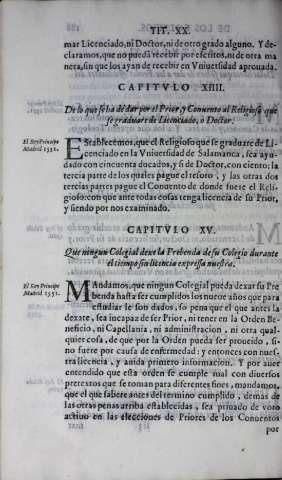 TIT. XX.
mar Licenciado, ni Doctor, ni de otro grado alguno. Y de-
claramos, que no pueda recebir por escritos, ni de otra ma
nera, sin que los ayan de recebir en Vniuersidad aprouada.
CAPITVLO XIIII.
De lo que se ha de dar por el Prior, y Conuento al Religioso que
se graduare de Licenciado, o Doctor.
El Rey Principe
Madrid 1552.
Establecemos, que el Religioso que se graduare de Li-
cenciado en la Vniuersidad de Salamanca, sea ayu-
dado con cincuenta ducados, y si de Doctor, con ciento: la
tercia parte de los quales pague el tesoro, y las otras dos
tercias partes pague el Conuento de donde fuere el Reli-
gioso: con que ante todas cosas tenga licencia de su Prior,
y siendo por nos examinado.
CAPITVLO XV.
Que ningun Colegial dexe la Prebenda de su Colegio durante
el tiempo sin licencia expressa nuestra.
El Rey Principe
Madrid 1551.
Mandamos, que ningun Colegial pueda dexar su Pre
benda hasta ser cumplidos los nueue años que para
estudiar le son dados, so pena que el que antes la
dexare, sea incapaz de ser Prior, ni tener en la Orden Be-
neficio, ni Capellania, ni administracion, ni otra qual-
quier cosa, de que por la Orden pueda ser proueido, si-
no fuere por causa de enfermedad: y entonces con nues-
tra licencia, y auida primero informacion. Y por auer
entendido que esta orden se cumple mal con diuersos
pretextos que se toman para diferentes fines, mandamos,
que el que saliere antes del termino cumplido, demas de
las otras penas arriba establecidas, sea priuado de voto
actiuo en las elecciones de Priores de los Conuentos
por